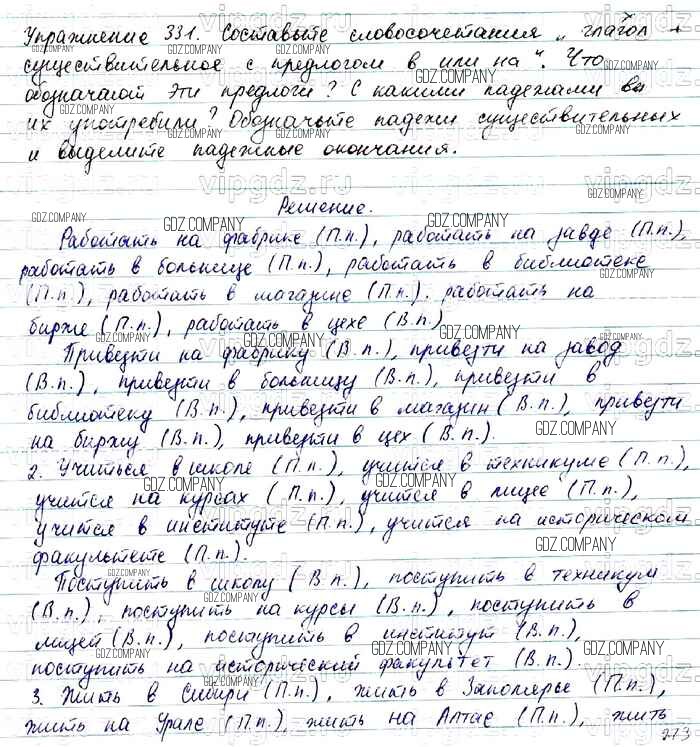 Упражнение 331. Составьте словосочетания „ глагол +
существительное с предлогом в или на ". Что
обозначают эти предлоги? С какими падежами вы
их употребили? Обозначьте падежи существительных
и выделите падежные окончания.
Решение.
Работать на фабрике (П.п.), работать на заводе (П.п.),
работать в больнице (П.п.), работать в библиотеке
(П.п.), работать в магазине (П.п.). работать на
бирже (П.п.), работать в цехе (В.п.)
Привезти на фабрику (В.п.), привезти на завод
(В.п.), привезти в больницу (В.п.), привезти в
библиотеку (В.п.), привезти в магазин (В.п.), привезти
на биржу (В.п.), привезти в цех (В.п.).
2. Учиться в школе (П.п.), учится в техникуме (П.п.),
учится на курсах (П.п.), учится в лицее (П.п.),
учится в институте (П.п.), учится на историческом
факультете (П.п.).
Поступить в школу (В.п.), поступить в техникум
(В.п.), поступить на курсы (В.п.), поступить в
лицей (В.п.), поступить в институт (В.п.),
поступить на исторический факультет (В.п.).
3. Жить в Сибири (П.п.), жить в Заполярье (П.п.),
жить на Урале (П.п.), жить на Алтае (П.п.), жить
273